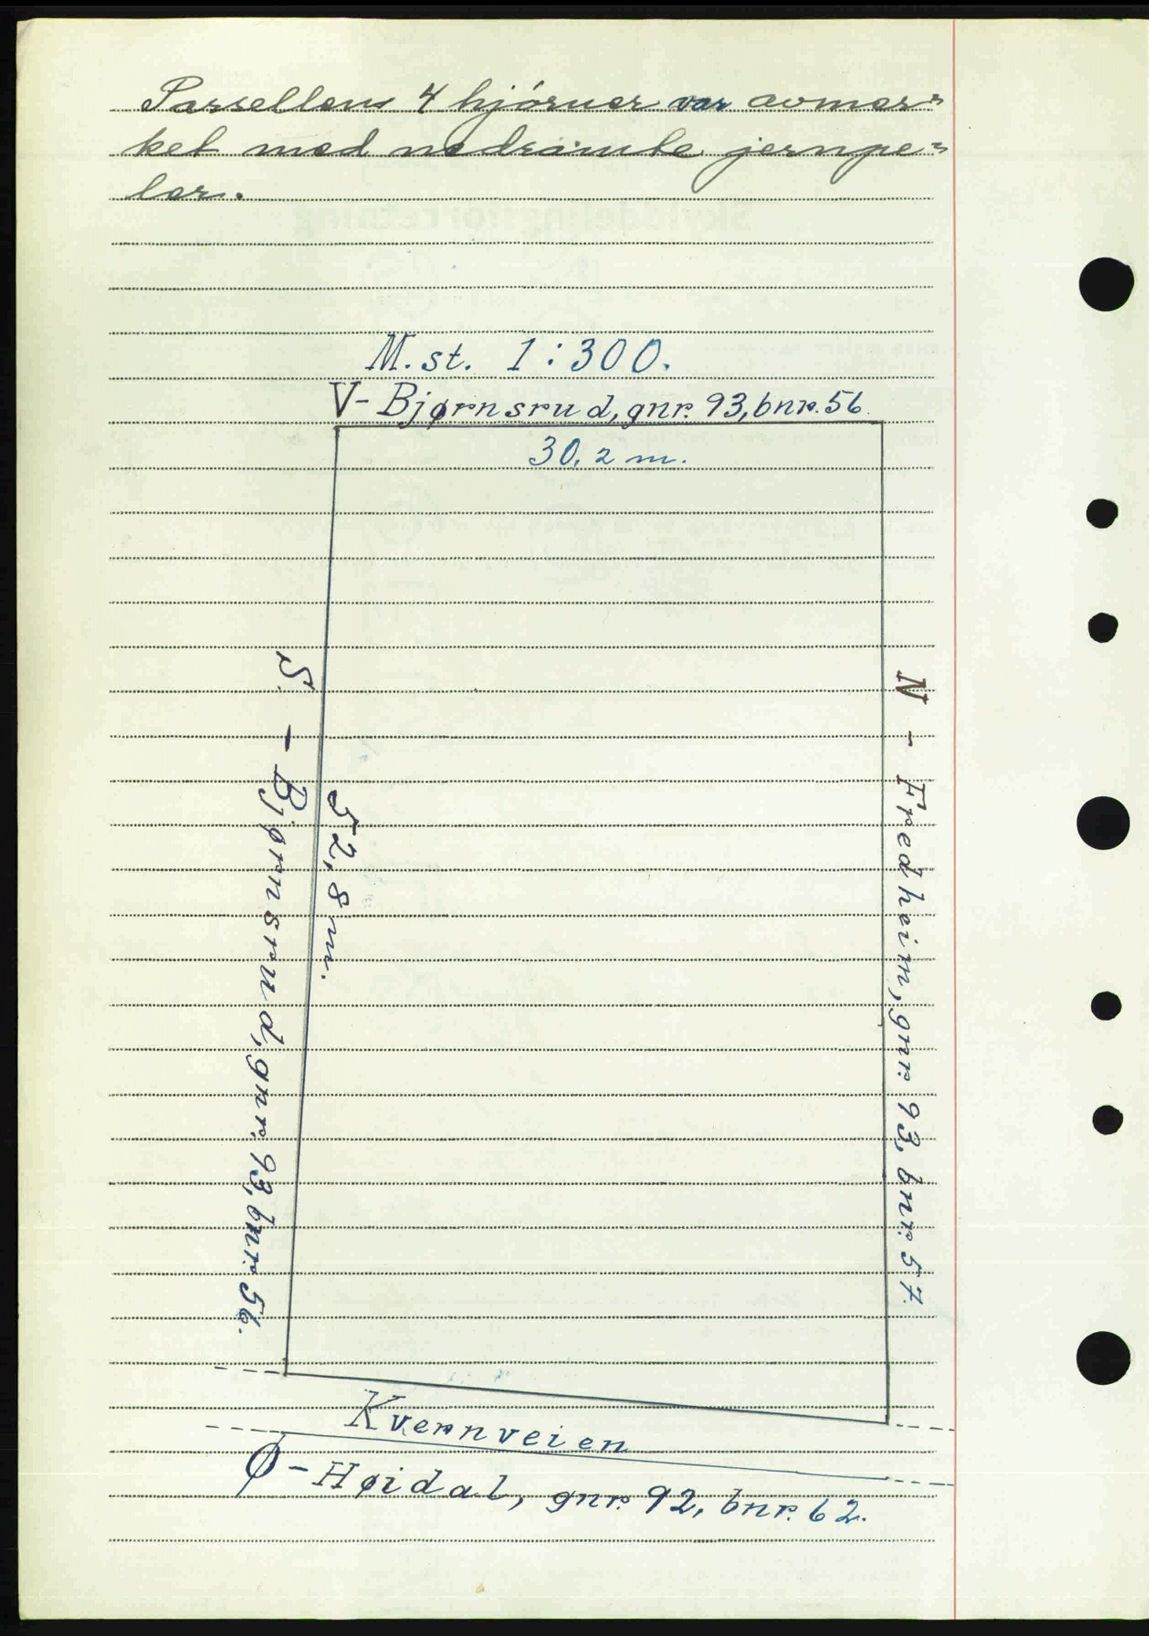 Parsellens 4 hjørner var avmer=
ket med nedramte jernpe=
ler.
M.st. 1:300.
V- Bjørnsrud, gnr. 93, bnr. 56.
30,2 m.
S. - Bjørnsrud, gnr. 93, bnr. 56.
52,8 m.
N - Fredheim, gnr. 93, bnr. 57.
Kvernveien
Ø- Høidal, gnr. 92, bnr. 62.